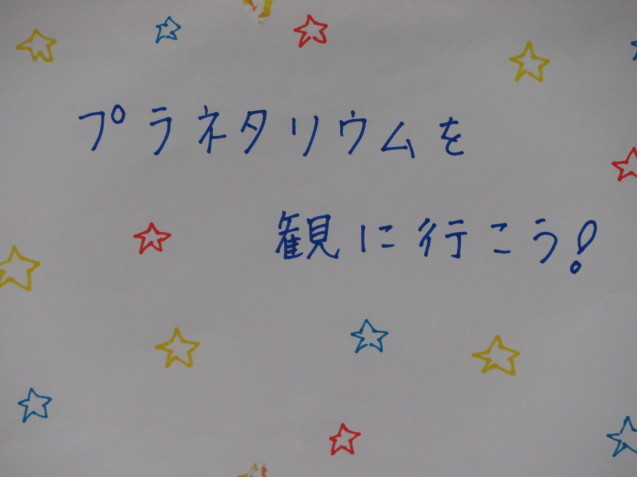 プラネタリウムを
観に行こう!